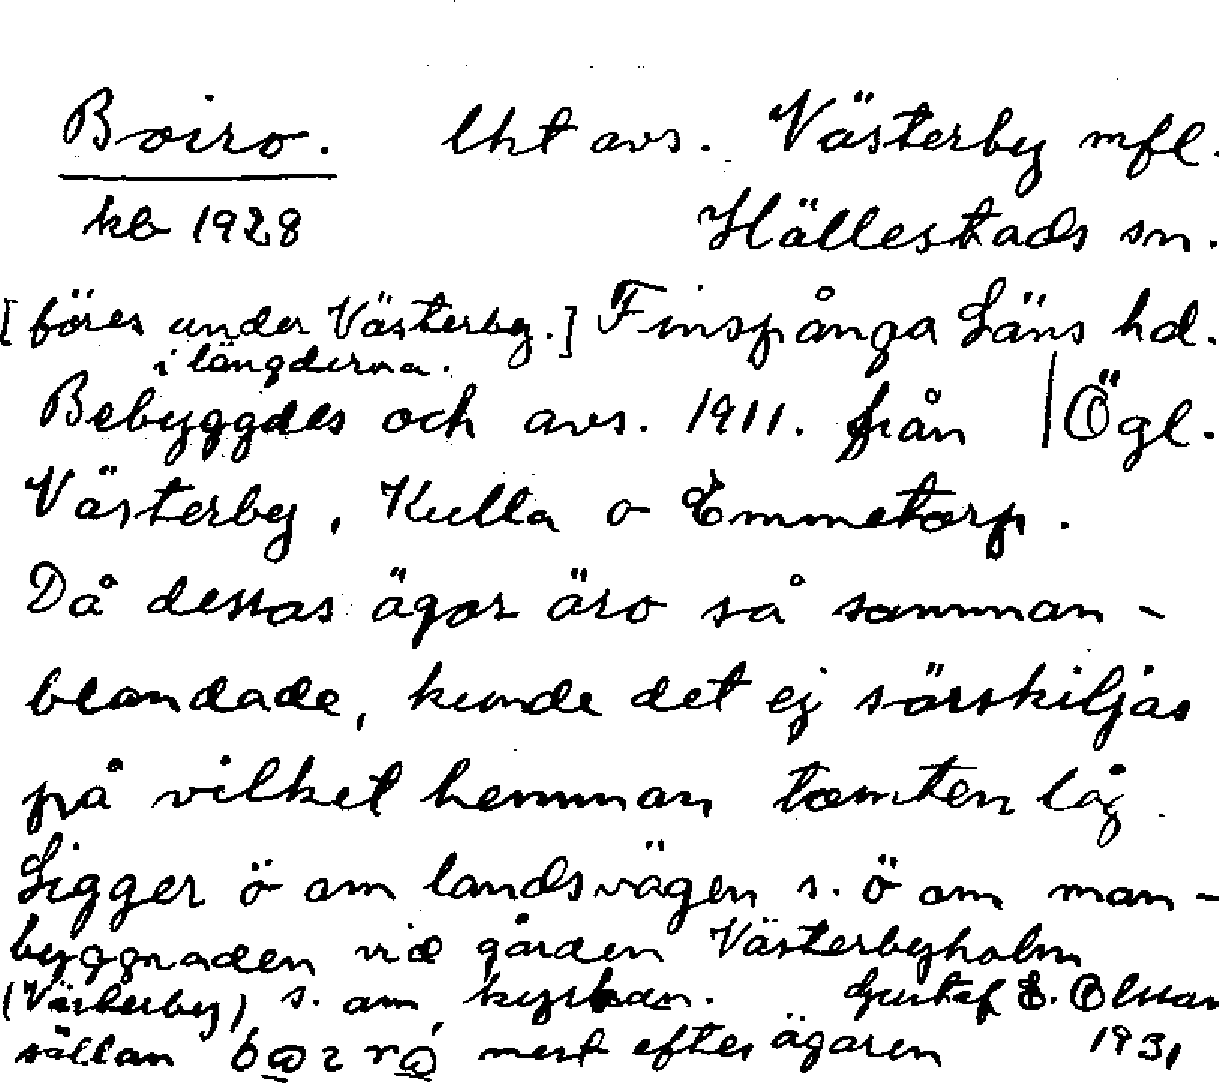 Boiro. lht avs. Västerby mfl.
kb 1928 Hällestads sn.
[föres under Västerby.] Finspånga Läns hd.
i längderna.
Bebyggdes och avs. 1911. från | Ögl.
Västerby, Kulla o Emmetorp.
Då dessas ägor äro så samman-
blandade, kunde det ej särskiljas
på vilket hemman tomten låg.
Ligger ö om landsvägen s. ö om man-
byggnaden vid gården Västerbyholm
(Västerby) s. om kyrkan. Gustaf E. Olsson
sällan mest efter ägaren 1931